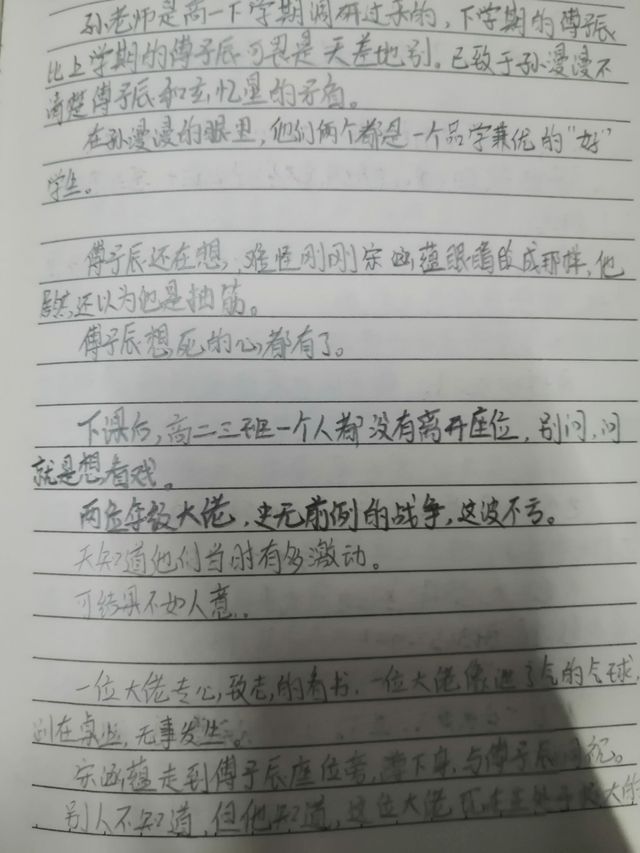 孙老师是高一下学期调研过来的，下学期的傅子辰
比上学期的傅子辰可畏是天差地别。已致于孙漫漫不
清楚傅子辰和玄忆星的矛盾。
在孙漫漫的眼里，他们俩个都是一个品学兼优的“好”
学生。
傅子辰还在想，难怪刚刚宋涵蕴眼睛成那样，他
居然还以为他是抽筋。
傅子辰想死的心都有了。
下课后，高二三班一个人都没有离开座位，别问，问
就是想看戏。
两位年级大佬，史无前例的战争，这波不亏。
天知道他们当时有多激动。
可结果不如人意。
一位大佬专心致志的看书，一位大佬像泄了气的气球，
趴在桌上，无事发生。
宋涵蕴走到傅子辰座位旁，蹲下身，与傅子辰视。
别人不知道，但他知道，这位大佬现在处于极大的